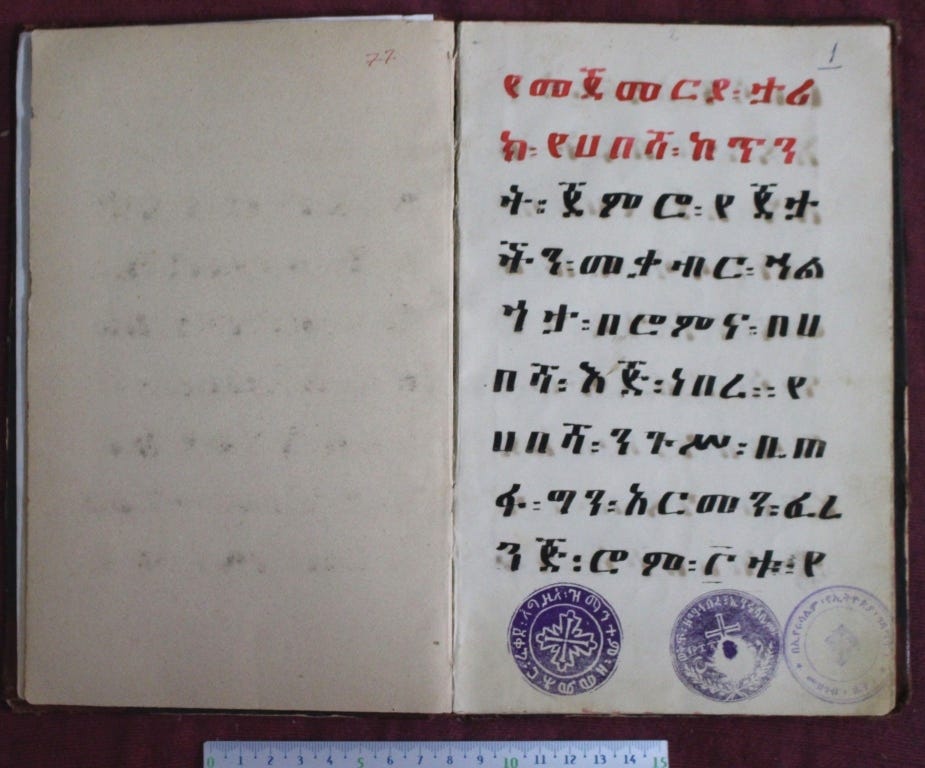 7.7.
1
የመጀመርያ፡ታሪ
ክ፡የሀበሻ፡ከጥን
ት፡ጀምሮ፡የጀታ
ችን፡መቃብር፡ኅል
ጎታ፡በሮምና፡በሀ
በሻ፡እጅ፡ነበረ፡፡የ
ሀበሻ፡ንጉሥ፡ቢጠ
ፋ፡ግን፡አርመን፡ፈረ
ንጅ፡ሮም፡ርቱ፡የ
0 1 2 3 4 5 6 7 8 9 10 11 12 13 14 15